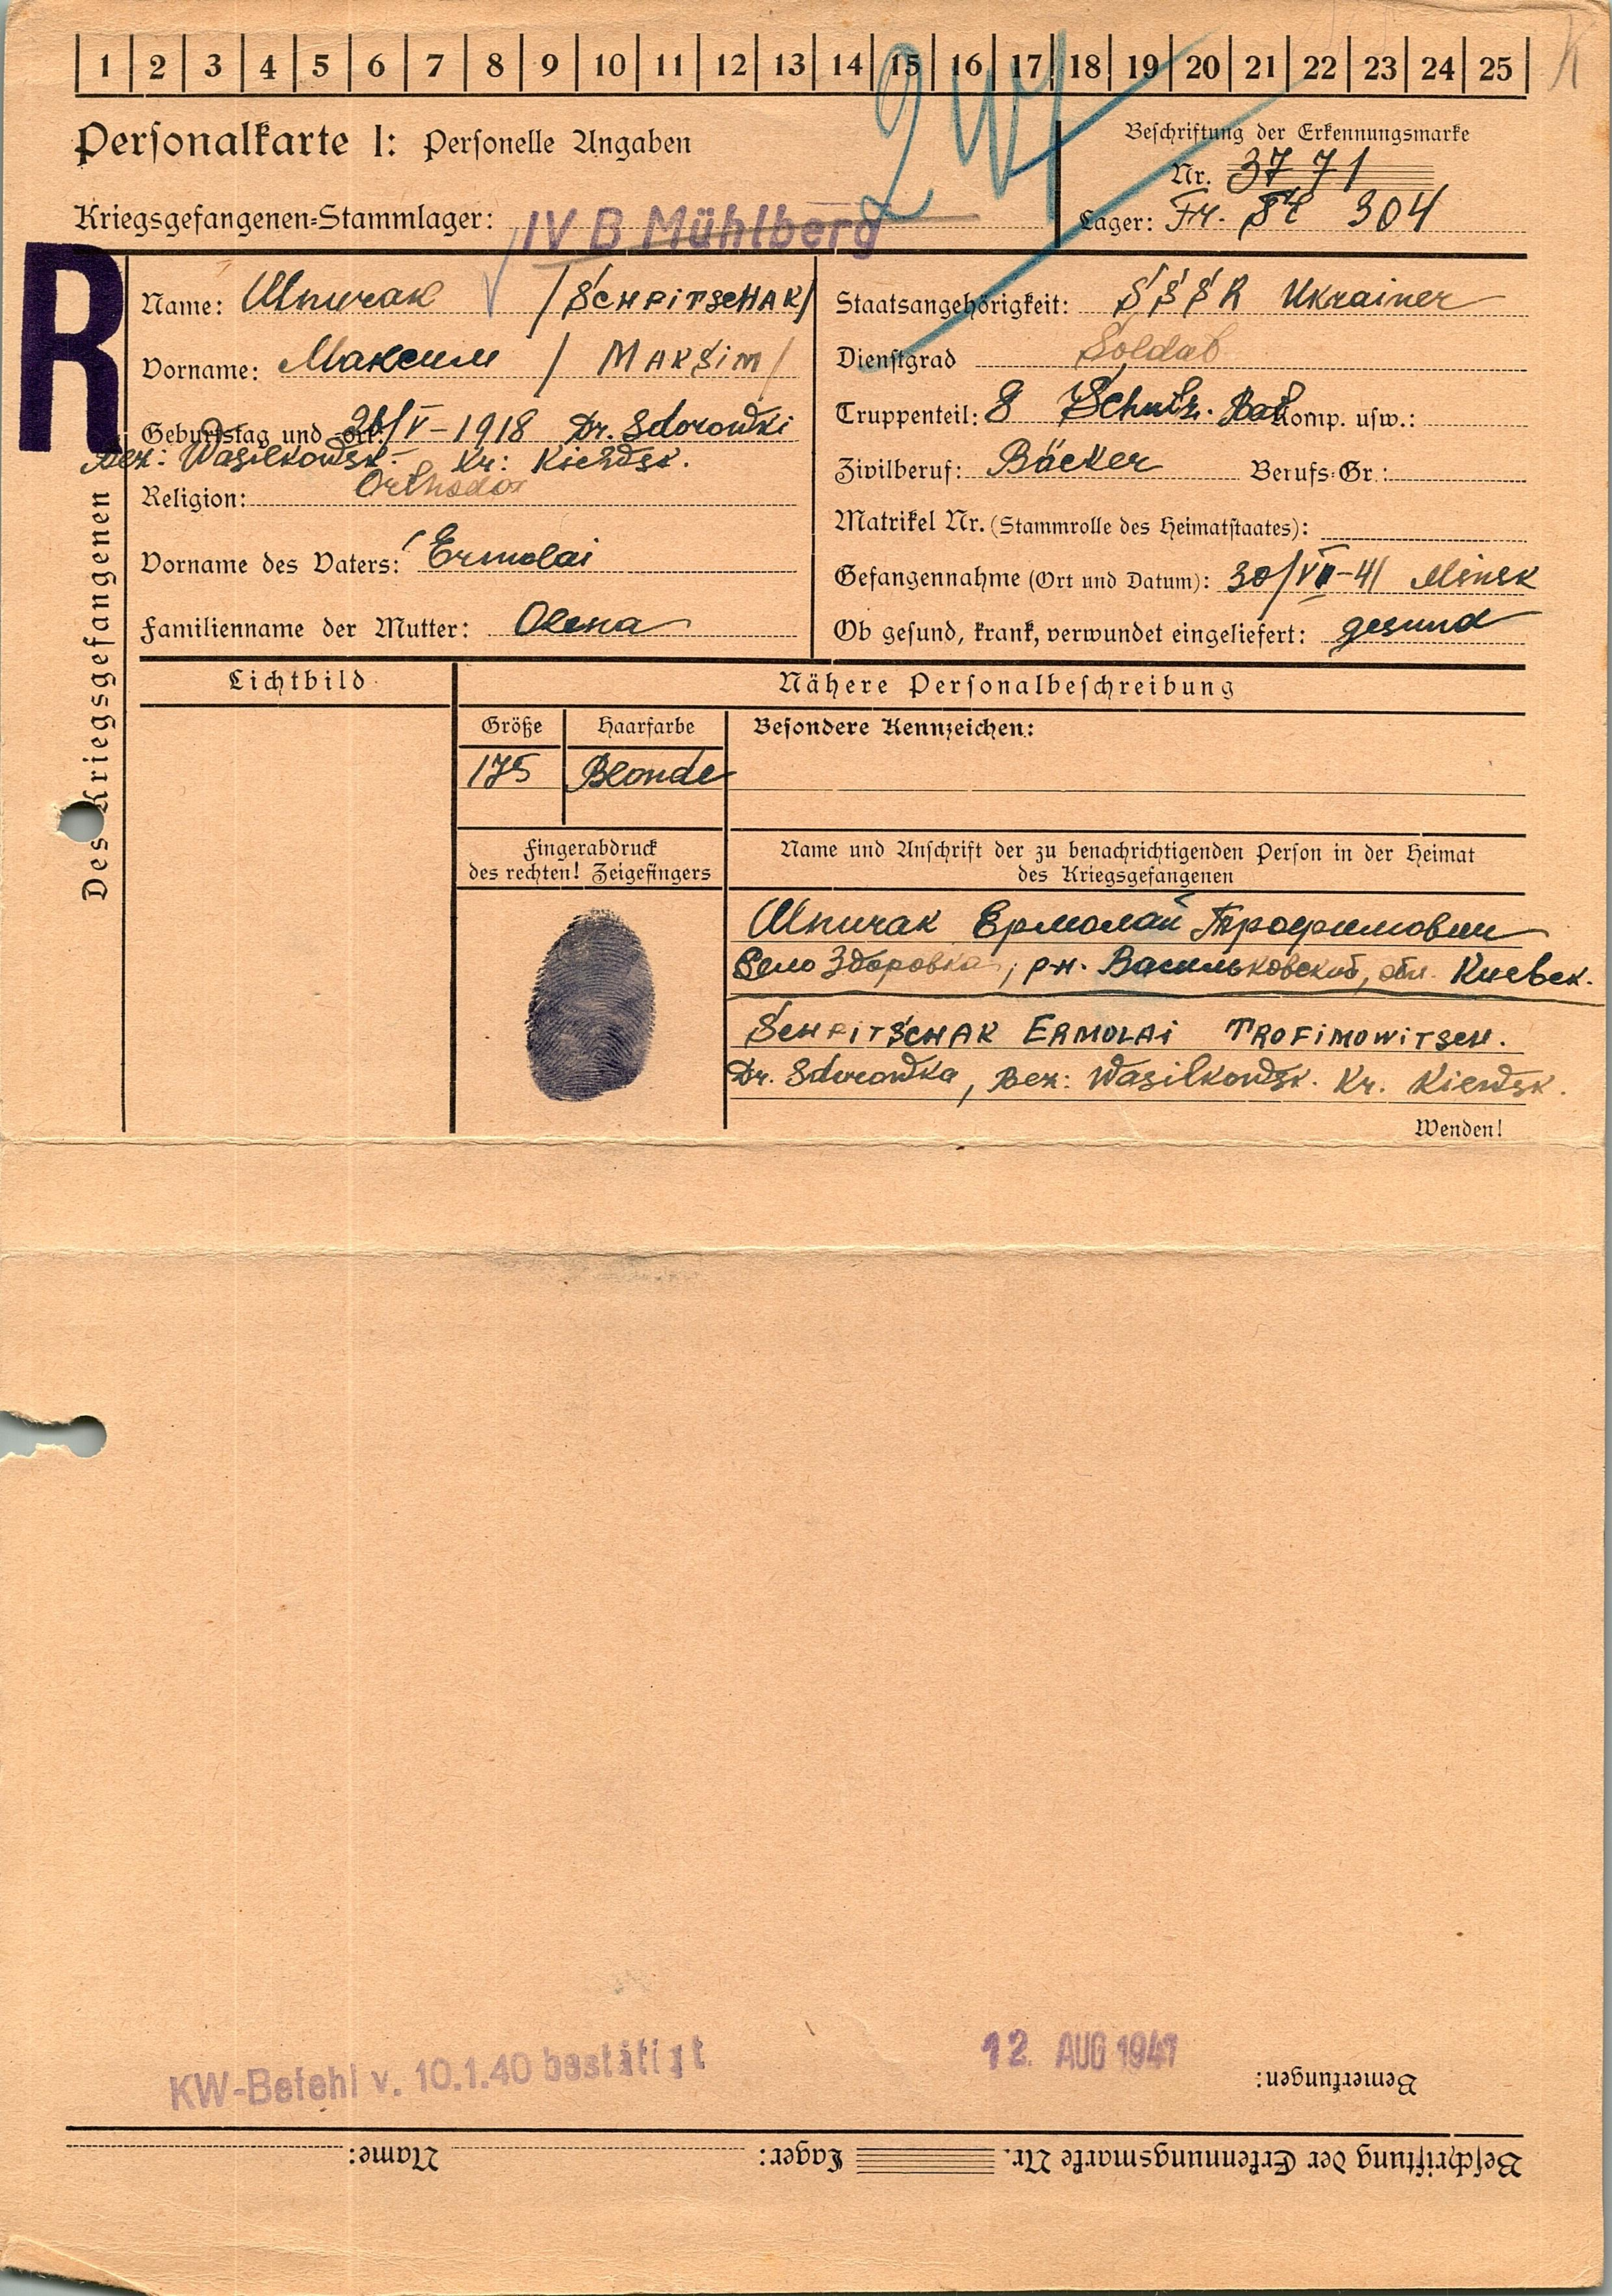 1 2 3 4 5 6 7 8 9 10 11 12 13 14 15 16 17 18 19 20 21 22 23 24 25
Personalkarte I: Personelle Angaben
Beschriftung der Erkennungsmarke
Nr. 3771
Kriegsgefangenen-Stammlager: IV B Mühlberg
Lager: 304
R
Des Kriegsgefangenen
Name: Шпичак /SCHPITSCHAK/
Vorname: Максим / MAKSIM/
Geburtstag und -ort: 26/V-1918 Dr. Sdorowki
Bez: Wasilkowsk. Kr: Kiewsk.
Religion: Orthodox
Vorname des Vaters: Ermolai
Familienname der Mutter: Olena
Staatsangehörigkeit: SSSR Ukrainer
Dienstgrad Soldat
Truppenteil: 8 Schutz. Bat. Komp. usw.:
Zivilberuf: Bäcker Berufs-Gr.:
Matrikel Nr. (Stammrolle des Heimatstaates):
Gefangennahme (Ort und Datum): 30/VII-41 Minsk
Ob gesund, krank, verwundet eingeliefert: gesund
Lichtbild
Nähere Personalbeschreibung
Größe Haarfarbe Besondere Kennzeichen:
175 Blonde
Fingerabdruck
des rechten! Zeigefingers
Name und Anschrift der zu benachrichtigenden Person in der Heimat
des Kriegsgefangenen
Шпичак Ермолай Трофимович
Село Здоровка, р-н. Васильковский, обл. Киевск.
SCHPITSCHAK ERMOLAI TROFIMOWITSCH.
Dr. Sdorowka, Bez: Wasilkowsk. Kr. Kiewsk.
Wenden!
KW-Befehl v. 10.1.40 bestätigt
12. AUG 1941
Bemerkungen:
Beschriftung der Erkennungsmarke Nr. Lager: Name: